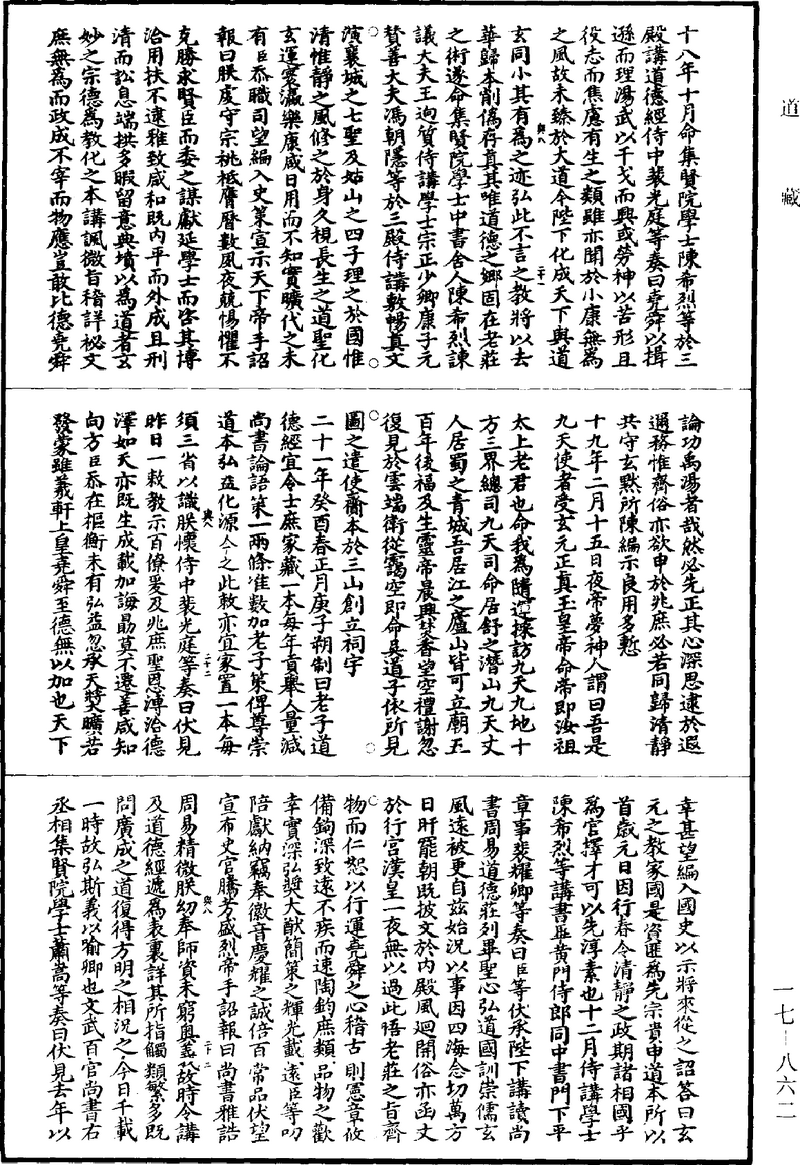 道藏
一七—八六二
十八年十月命集賢院學士陳希烈等於三
殿講道德經侍中裴光庭等奏曰堯舜以揖
遜而理湯武以干戈而興或勞神以苦形且
役志而焦慮有生之類雖亦聞於小康無為
之風故未臻於大道今陛下化成天下與道
玄同小其有為之迹弘此不言之教將以去
華歸本削僞存真其唯道德之鄉固在老莊
之術遂命集賢院學士中書舍人陳希烈諫
議大夫王迥質侍講學士宗正少卿康子元
贊善大夫馮朝隱等於三殿侍講敷暢真文
演襄城之七聖及姑山之四子理之於國惟
清惟靜之風修之於身久視長生之道聖化
玄運寰瀛樂康咸日用而不知實曠代之未
有臣忝職司望編入史策宣示天下帝手詔
報曰朕虔守宗祧祗膺曆數夙夜兢惕懼不
克勝永賢臣而委之謀猷延學士而咨其博
洽用扶不逮雅致咸和既内平而外成且刑
清而訟息端拱多暇留意典墳以為道者玄
妙之宗德為教化之本講諷微旨稽詳祕文
庶無為而政成不宰而物應豈敢比德堯舜
論功禹湯者哉然必先正其心深思逮於遐
邇務惟齊俗亦欲申於兆庶必若同歸清靜
共守玄默所陳編示良用多慙
十九年二月十五日夜帝夢神人謂曰吾是
九天使者受玄元正真玉皇帝命帝即汝祖
太上老君也命我為隨逐採訪九天九地十
方三界總司九天司命居舒之潛山九天丈
人居蜀之青城吾居江之廬山皆可立廟五
百年後福及生靈帝晨興焚香望空禮謝忽
復見於雲端衛從靄空即命吳道子依所見
圖之遣使齎本於三山創立祠宇
二十一年癸酉春正月庚子朔制曰老子道
德經宜令士庶家藏一本每年貢舉人量減
尚書論語策一兩條准數加老子策俾尊崇
道本弘益化源今之此敕亦宜家置一本每
須三省以識朕懷侍中裴光庭等奏曰伏見
昨日一敕教示百僚爰及兆庶聖恩溥洽德
澤如天亦既生成載加誨勗莫不遷善咸知
向方臣忝在樞衡未有弘益忽承天獎曠若
發蒙雖羲軒上皇堯舜至德無以加也天下
幸甚望編入國史以示將來從之詔答曰玄
元之教家國是資匪為先宗貴申道本所以
首歲元日因行春令清靜之政期諸相國乎
為官擇才可以先淳素也十二月侍講學士
陳希烈等講書畢黄門侍郎同中書門下平
章事裴耀卿等奏曰臣等伏承陛下講讀尚
書周易道德莊列畢聖心弘道國訓崇儒玄
風遠被更自兹始況以事因四海念切萬方
日旰罷朝既披文於内殿風迴開俗亦函文
於行宫漢皇一夜無以過此悟老莊之旨齊
物而仁恕以行運堯舜之心稽古則憲章攸
備鉤深致遠不疾而速陶鈞庶類品物之歡
幸實深弘奬大猷簡策之輝光載遠臣等叨
陪獻納竊奉徽音慶耀之誠倍百常品伏望
宣布史官騰芳盛烈帝手詔報曰尚書雅誥
周易精微朕幼奉師資未窮奥義故時令講
及道德經遞為表裏詳其所指觸類繁多既
問廣成之道復得方明之相況之今日千載
一時故弘斯義以喻卿也文武百官尚書右
丞相集賢院學士蕭嵩等奏曰伏見去年以